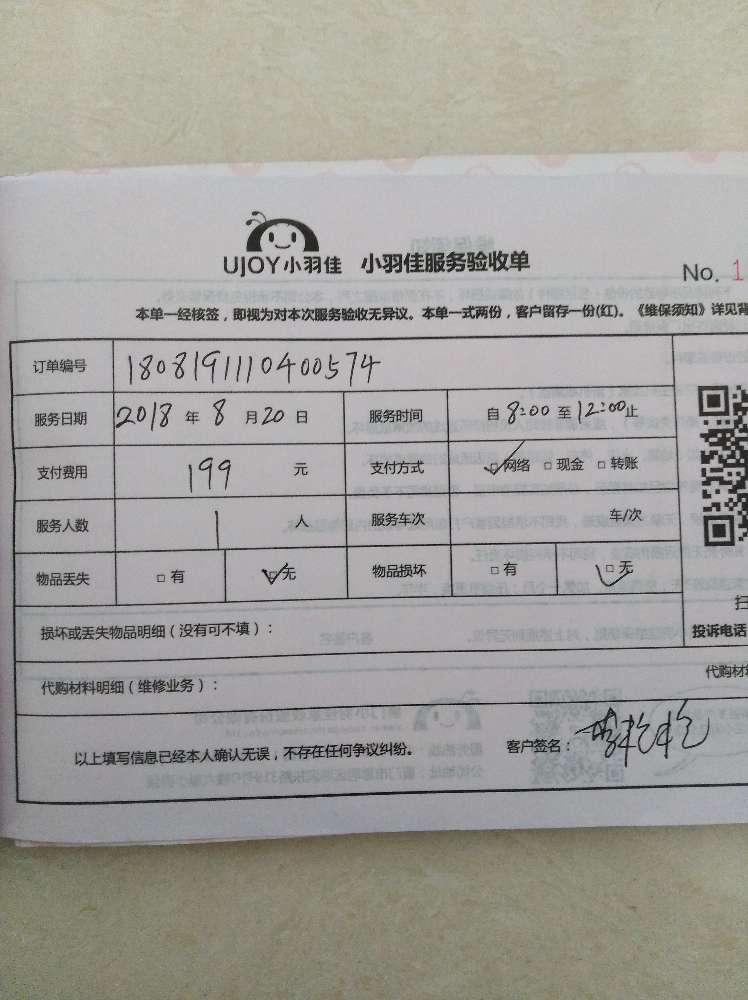 UJOY小羽佳 小羽佳服务验收单
No. 1
本单一经核签，即视为对本次服务验收无异议。本单一式两份，客户留存一份(红)。《维保须知》详见背
订单编号 1808191110400574
服务日期 2018 年 8 月 20 日 服务时间 自 8:00 至 12:00 止
支付费用 199 元 支付方式 ☑网络 □现金 □转账
服务人数 1 人 服务车次 车/次
物品丢失 □有 ☑无 物品损坏 □有 ☑无
扫
损坏或丢失物品明细（没有可不填）： 投诉电话
代购材料明细（维修业务）： 代购材
以上填写信息已经本人确认无误，不存在任何争议纠纷。 客户签名：